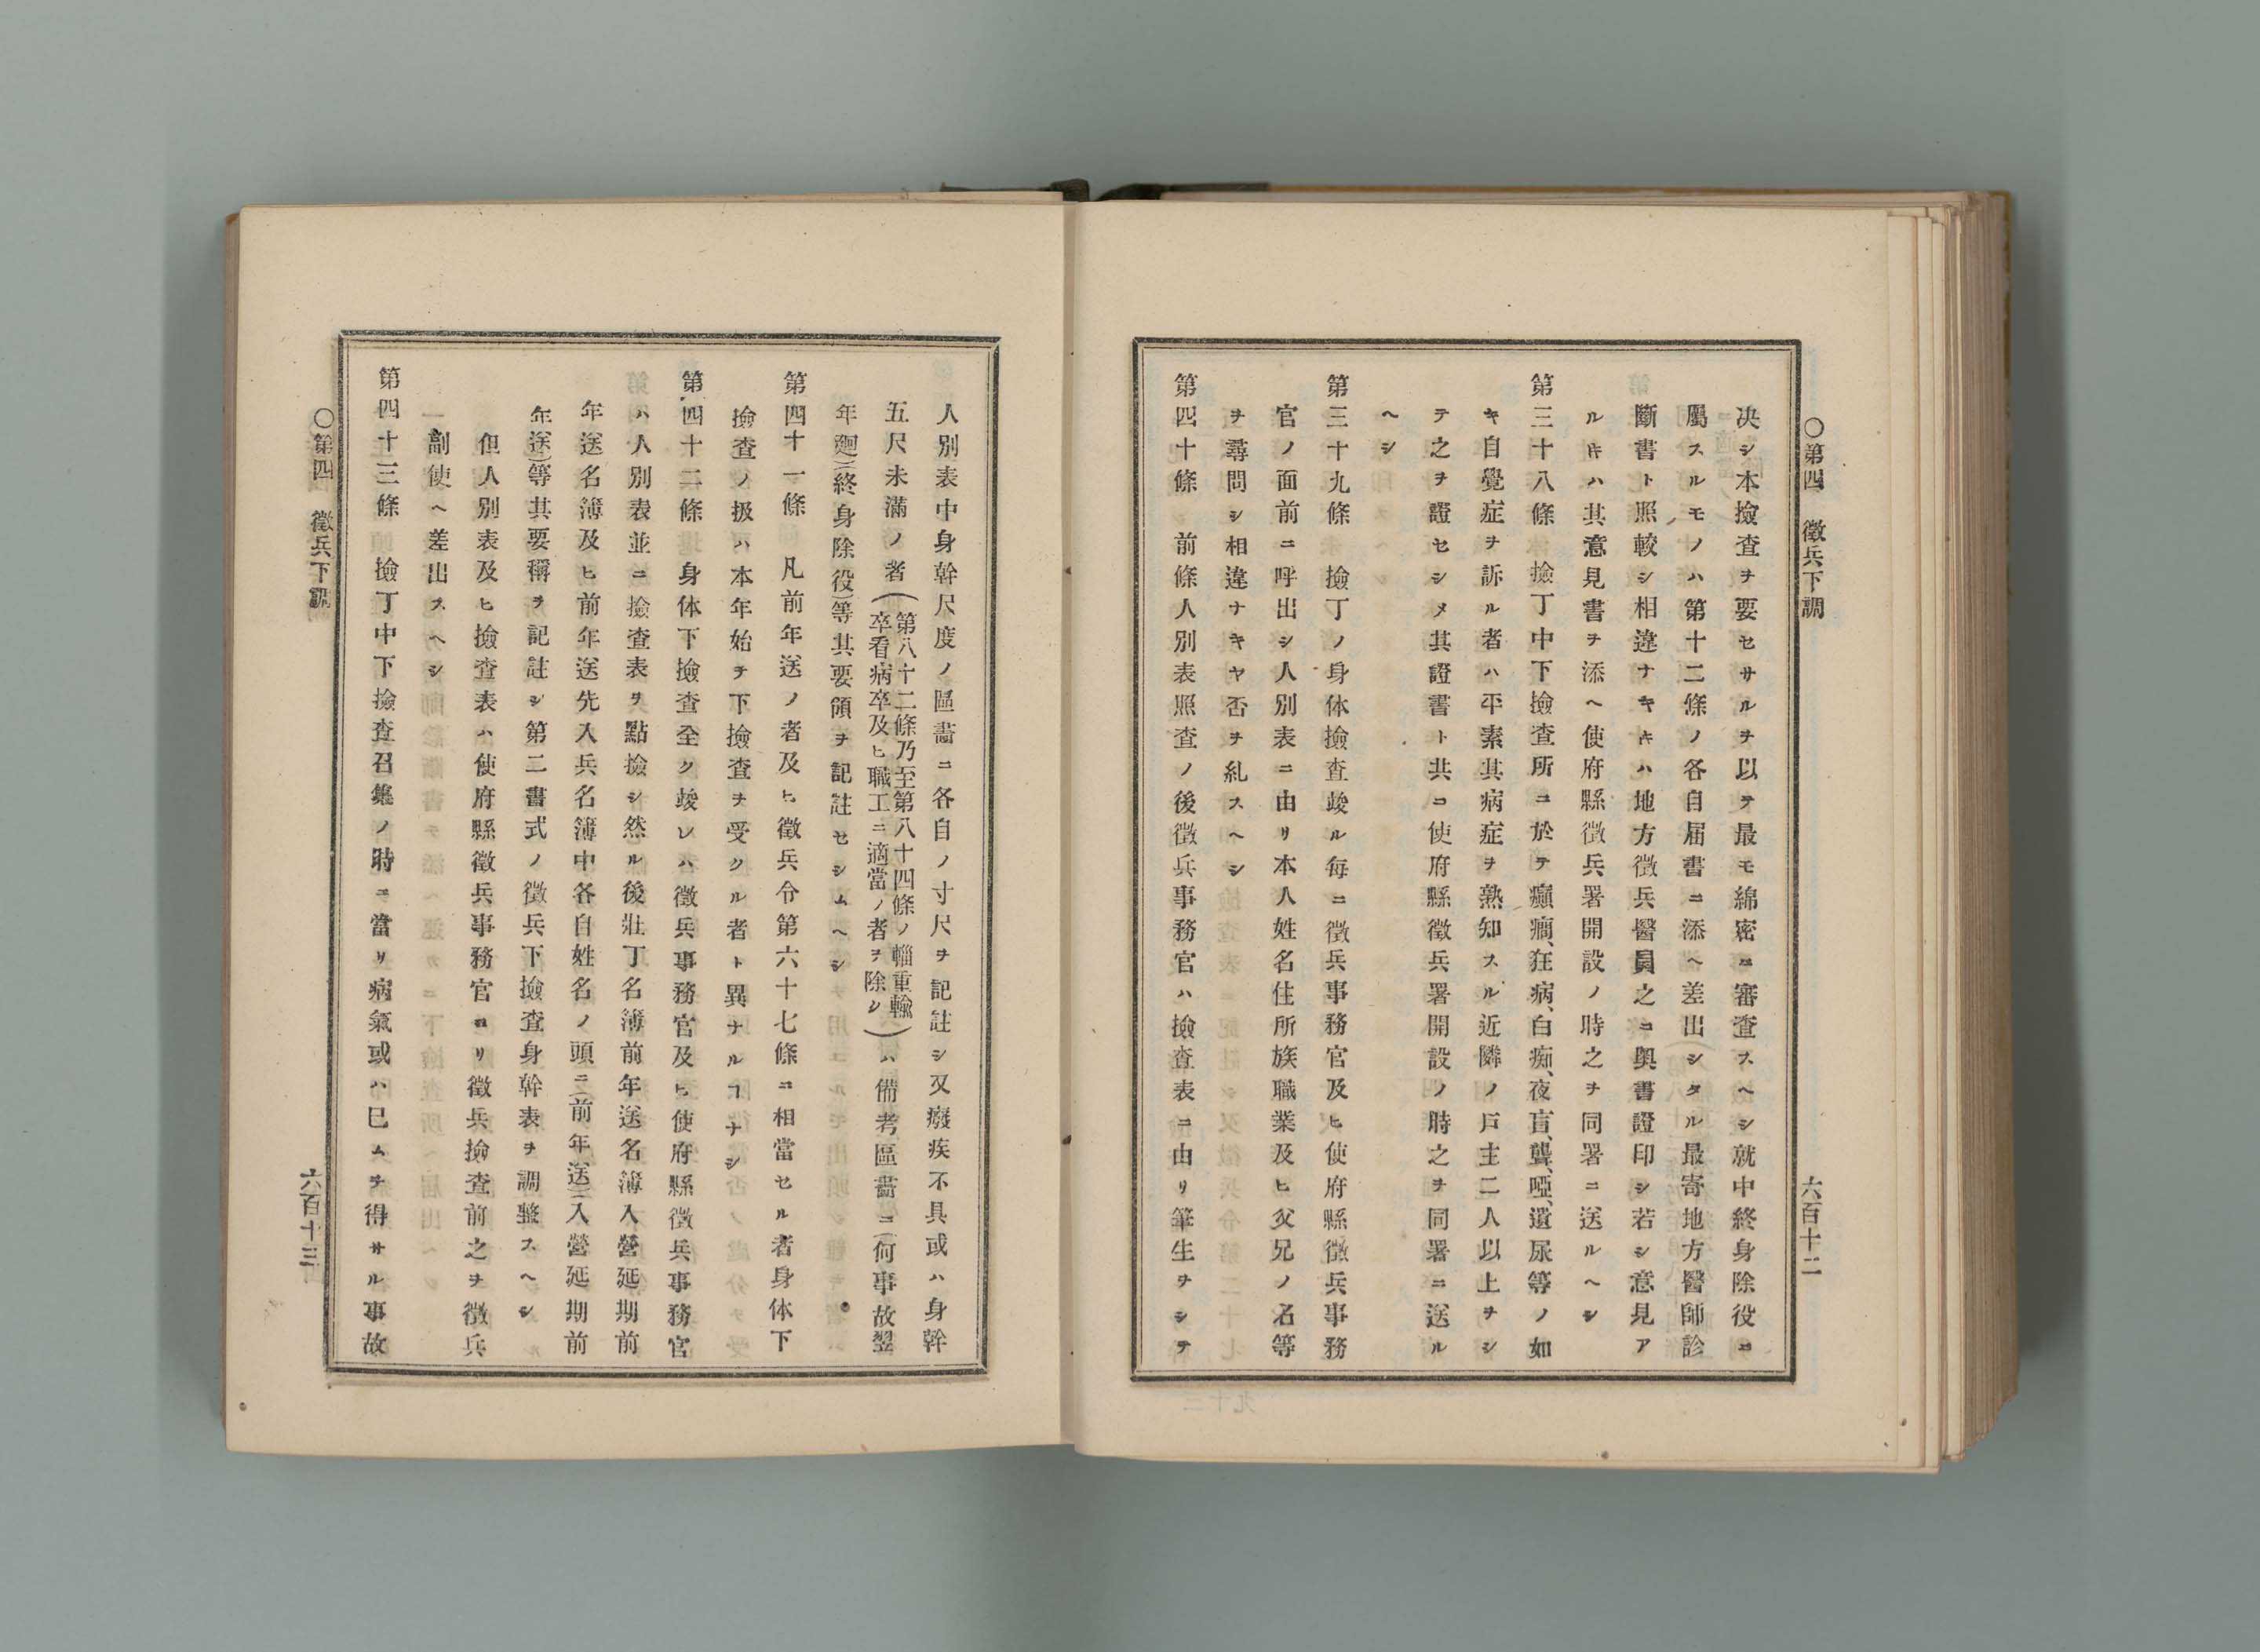 〇第四　徵兵下調
六百十二
决シ本撿査ヲ要セサルヲ以テ最モ綿密ニ審査スヘシ就中終身除役ニ
屬スルモノハ第十二條ノ各自届書ニ添ヘ差出シタル最寄地方醫師診
斷書ト照較シ相違ナキキハ地方徵兵醫員之ニ奧書證印シ若シ意見ア
ルキハ其意見書ヲ添ヘ使府縣徵兵署開設ノ時之ヲ同署ニ送ルヘシ
第三十八條　撿丁中下撿査所ニ於テ癲癇、狂病、白痴、夜盲、聾、啞、遺尿等ノ如
キ自覺症ヲ訴ル者ハ平素其病症ヲ熟知スル近隣ノ戸主二人以上ヲシ
テ之ヲ證セシメ其證書ト共ニ使府縣徵兵署開設ノ時之ヲ同署ニ送ル
ヘシ
第三十九條　撿丁ノ身体撿査竣ル每ニ徵兵事務官及ヒ使府縣徵兵事務
官ノ面前ニ呼出シ人別表ニ由リ本人姓名住所族職業及ヒ父兄ノ名等
ヲ尋問シ相違ナキヤ否ヲ糺スヘシ
第四十條　前條人別表照査ノ後徵兵事務官ハ撿査表ニ由リ筆生ヲシテ
人別表中身幹尺度ノ區畵ニ各自ノ寸尺ヲ記註シ又癈疾不具或ハ身幹
五尺未滿ノ者(第八十二條乃至第八十四條ノ輜重輸
卒看病卒及ヒ職工ニ適當ノ者ヲ除ク)ハ備考區畵ニ(何事故翌
年廻)(終身除役)等其要領ヲ記註セシムヘシ
第四十一條　凡前年送ノ者及ヒ徵兵令第六十七條ニ相當セル者身体下
撿査ノ扱ハ本年始テ下撿査ヲ受クル者ト異ナルコナシ
第四十二條　身体下撿査全ク竣レハ徵兵事務官及ヒ使府縣徵兵事務官
ハ人別表並ニ撿査表ヲ點撿シ然ル後壯丁名簿前年送名簿入營延期前
年送名簿及ヒ前年送先入兵名簿中各自姓名ノ頭ニ(前年送)(入營延期前
年送)等其要稱ヲ記註シ第二書式ノ徵兵下撿査身幹表ヲ調整スヘシ
但人別表及ヒ撿査表ハ使府縣徵兵事務官ヨリ徵兵撿査前之ヲ徵兵
副使ヘ差出スヘシ
第四十三條　撿丁中下撿査召集ノ時ニ當リ病氣或ハ已ムヲ得サル事故
〇第四　徵兵下調
六百十三